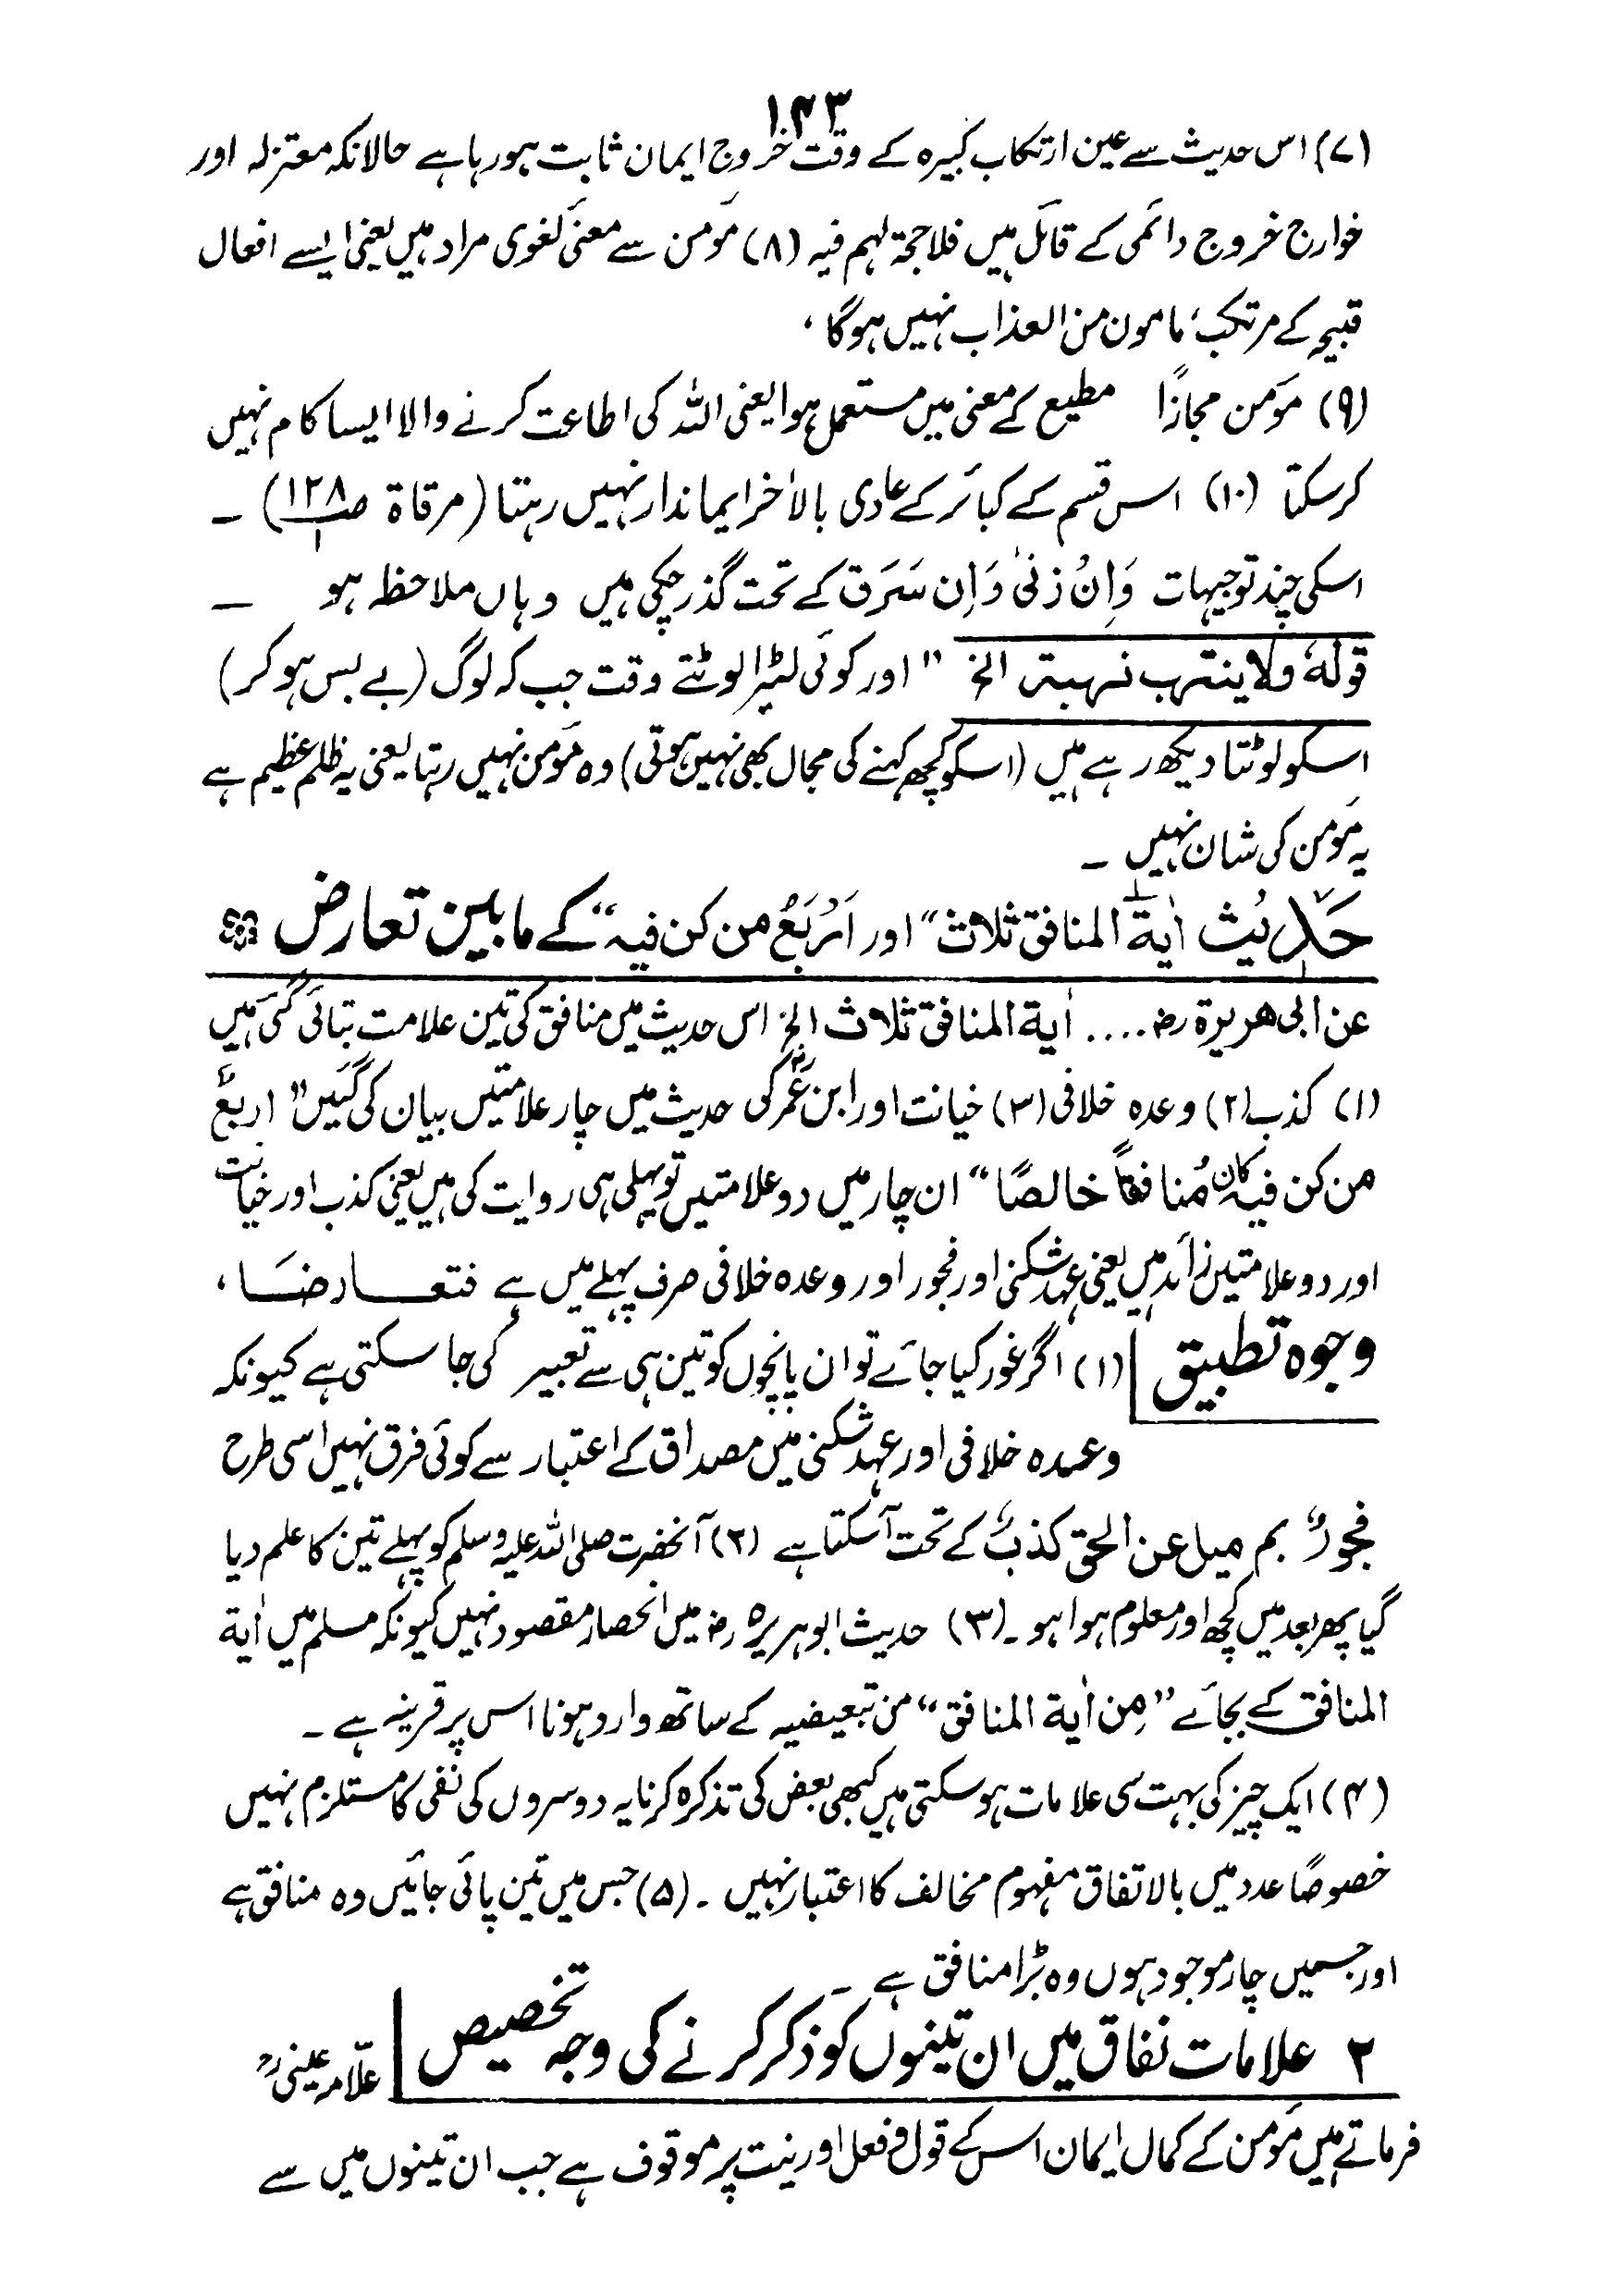 ۱۴۳
(۷) اس حدیث سے عین ارتکاب کبیرہ کے وقت خروج ایمان ثابت ہورہا ہے حالانکہ معتزلہ اور
خوارج خروج دائمی کے قائل ہیں فلاحجۃ لہم فیہ (۸) مؤمن سے معنیٰ لغوی مراد ہیں یعنی ایسے افعال
قبیحہ کے مرتکب ، مامون من العذاب نہیں ہوگا ،
(۹) مؤمن مجازاً مطیع کے معنی میں مستعمل ہوا یعنی اللہ کی اطاعت کرنے والا ایسا کام نہیں
کرسکتا (۱۰) اس قسم کے کبائر کے عادی بالآخر ایماندار نہیں رہتا (مرقاۃ صـ ۱۲۸/۱) ۔
اسکی چند توجیہات وَاِنْ زنیٰ وَاِن سَرَق کے تحت گذر چکی ہیں وہاں ملاحظہ ہو ۔
قولہٗ ولا ینتہب نہبتہ الخ " اور کوئی لٹیرا لوٹتے وقت جب کہ لوگ (بے بس ہوکر)
اسکو لوٹتا دیکھ رہے ہیں (اسکو کچھ کہنے کی مجال بھی نہیں ہوتی) وہ مؤمن نہیں رہتا یعنی یہ ظلم عظیم ہے
یہ مؤمن کی شان نہیں ۔
حَدِیث اٰیۃ المنافق ثلاث" اور اَرْبَعُ من کن فیہ" کے مابین تعارض
عن ابی ھریرۃ رض .... اٰیۃ المنافق ثلاث الخ اس حدیث میں منافق کی تین علامت بتائی گئی ہیں
(۱) کذب (۲) وعدہ خلافی (۳) خیانت اور ابن عمرؓ کی حدیث میں چار علامتیں بیان کی گئیں " اربعٌ
من کن فیہ کان مُنافقاً خالصًا " ان چار میں دو علامتیں تو پہلی ہی روایت کی ہیں یعنی کذب اور خیانت
اور دو علامتیں زائد ہیں یعنی عہد شکنی اور فجور اور وعدہ خلافی صرف پہلے میں ہے فتعارضَا ،
وجوہ تطبیق (۱) اگر غور کیا جائے تو ان پانچوں کو تین ہی سے تعبیر کی جا سکتی ہے کیونکہ
وعدہ خلافی اور عہد شکنی میں مصداق کے اعتبار سے کوئی فرق نہیں اسی طرح
فجورٌ بم میل عن الحق کذبٌ کے تحت آسکتا ہے (۲) آنحضرت صلی اللہ علیہ وسلم کو پہلے تین کا علم دیا
گیا پھر بعد میں کچھ اور معلوم ہوا ہو ۔ (۳) حدیث ابوہریرہ رض میں انحصار مقصود نہیں کیونکہ مسلم میں اٰیۃ
المنافق کے بجائے "مِن اٰیۃ المنافق" من تبعیضیہ کے ساتھ وارد ہونا اس پر قرینہ ہے ۔
(۴) ایک چیز کی بہت سی علامات ہو سکتی ہیں کبھی بعض کی تذکرہ کرنا یہ دوسروں کی نفی کا مستلزم نہیں
خصوصًا عدد میں بالاتفاق مفہوم مخالف کا اعتبار نہیں ۔ (۵) جس میں تین پائی جائیں وہ منافق ہے
اور جسمیں چار موجود ہوں وہ بڑا منافق ہے ۔
۲ علامات نفاق میں ان تینوں کو ذکر کرنے کی وجہ تخصیص علّامہ عینیؒ
فرماتے ہیں مؤمن کے کمال ایمان اس کے قول و فعل اور نیت پر موقوف ہے جب ان تینوں میں سے